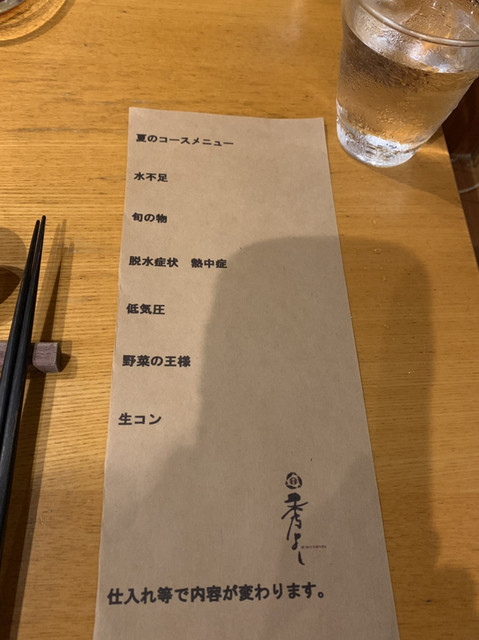 夏のコースメニュー
水不足
旬の物
脱水症状　熱中症
低気圧
野菜の王様
生コン
秀よし
仕入れ等で内容が変わります。